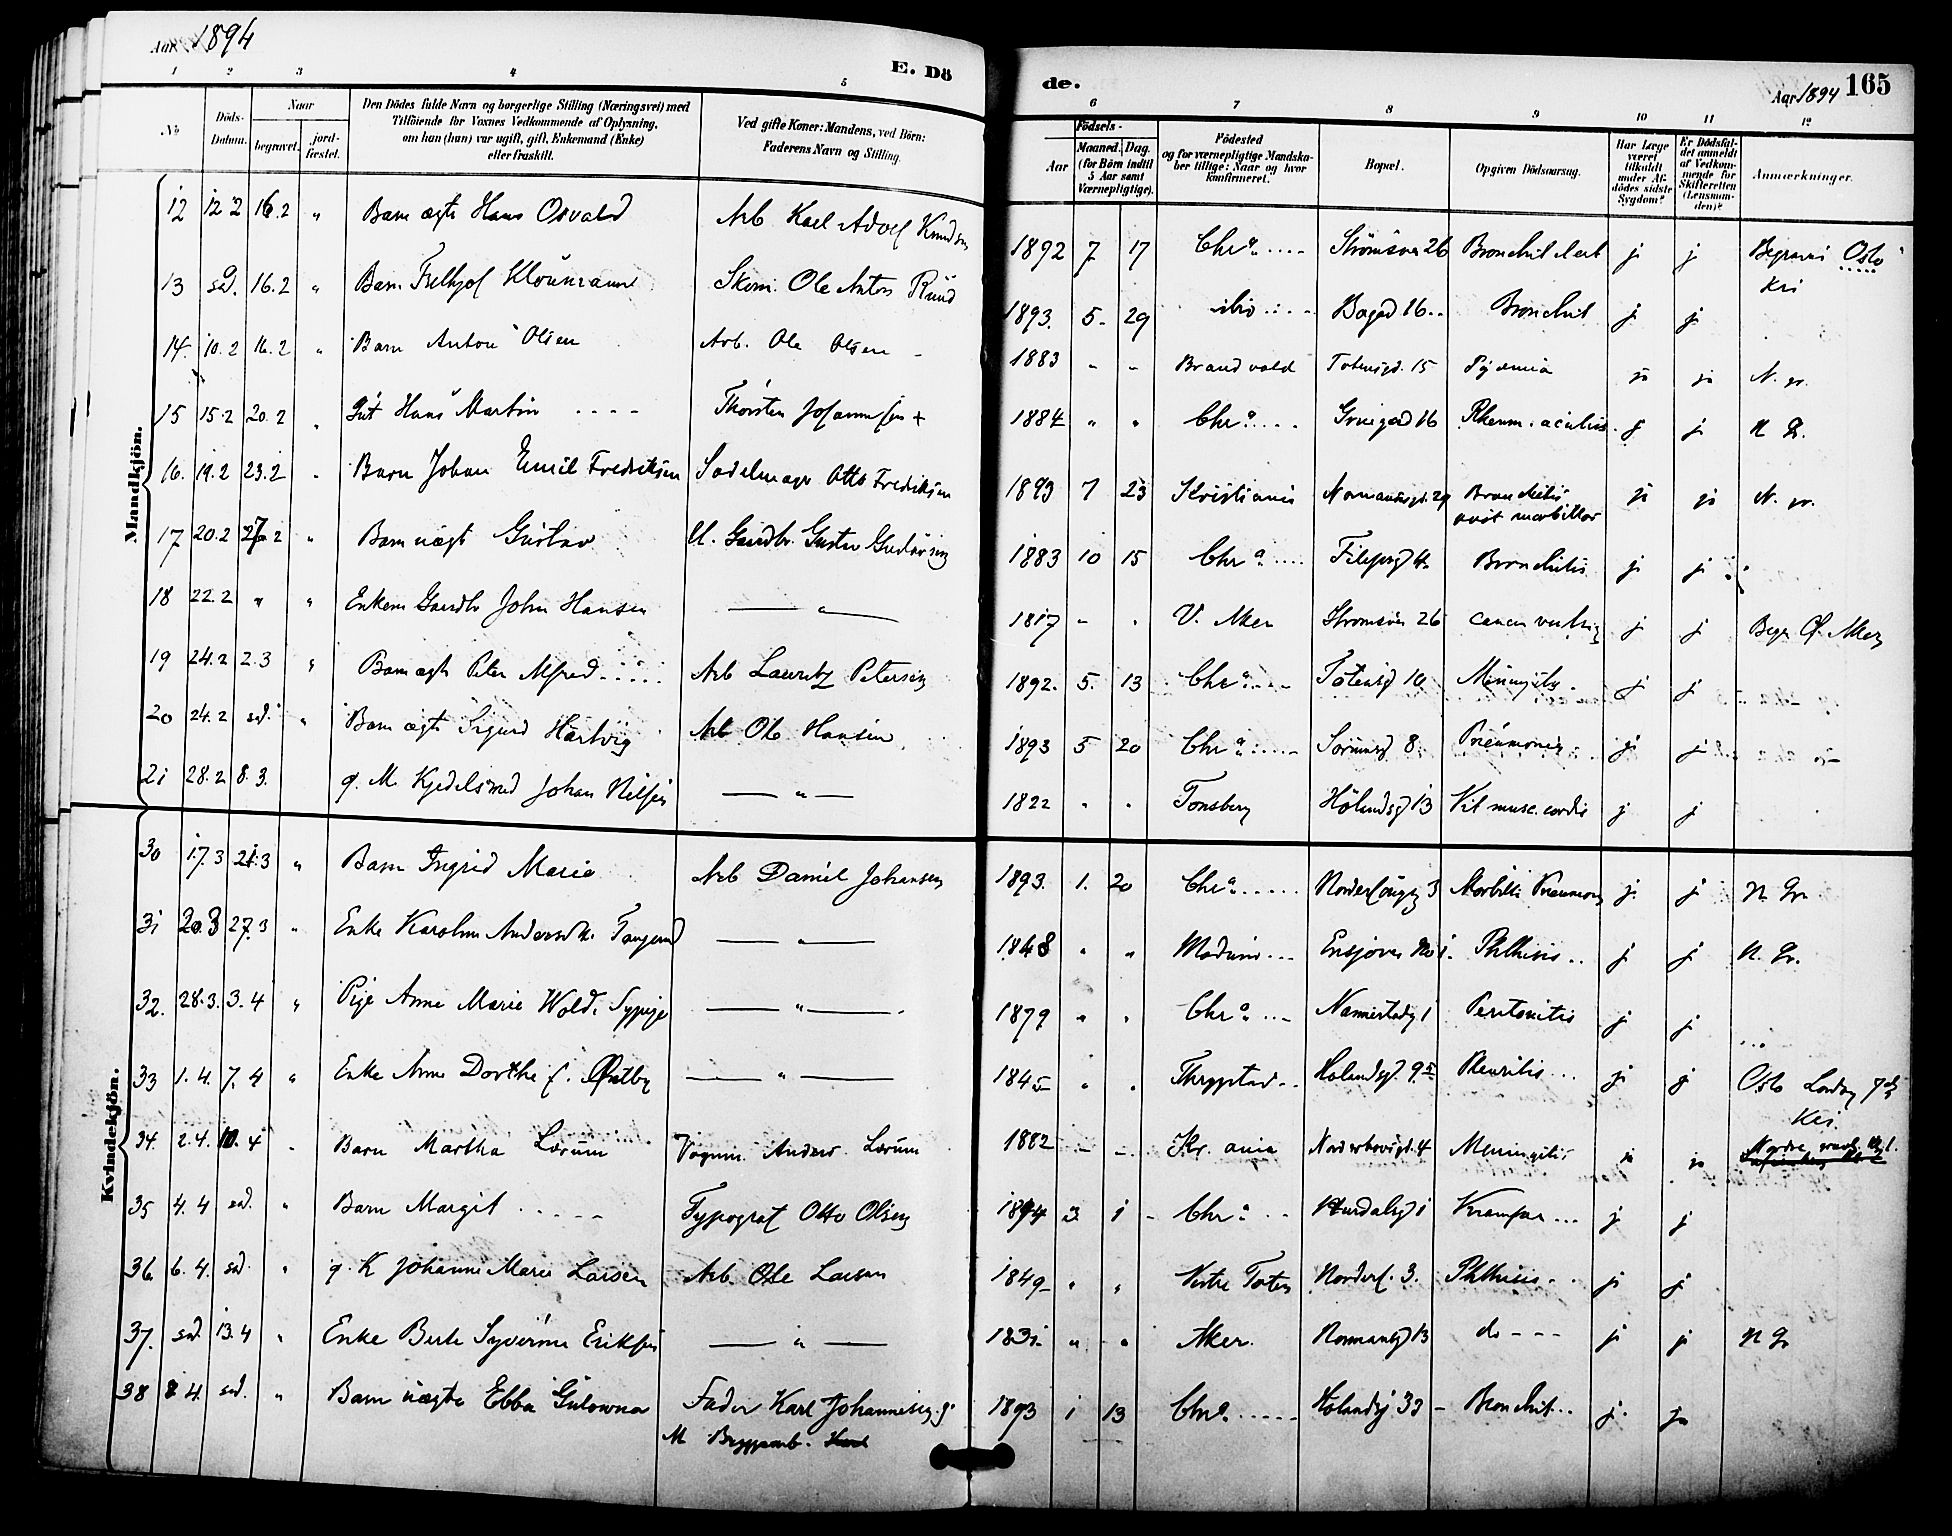 Aar 1894
E. Dö
de.
Aar 1894 165
1 2 3 4 5
6 7 8 9 10 11 12
No
Döds-Datum.
Naar
begravet.
jord-fæstet.
Den Dödes fulde Navn og borgerlige Stilling (Næringsvei) med
Tilföiende for Voxnes Vedkommende af Oplysning,
om han (hun) var ugift, gift, Enkemand (Enke)
eller fraskilt.
Ved gifte Koner: Mandens, ved Börn:
Faderens Navn og Stilling.
Födsels-
Aar
Maaned. Dag.
(for Börn indtil
5 Aar samt
Værnepligtige).
Födested
og for værnepligtige Mandska-
ber tillige: Naar og hvor
konfirmeret.
Bopæl.
Opgiven Dödsaarsag.
Har Læge
været
tilkaldt
under Af-
dödes sidste
Sygdom?
Er Dödsfal-
det anmeldt
af Vedkom-
mende for
Skifteretten
(Lensman-
den)?
Anmærkninger.
Mandkjön.
12 12 2 16.2 " Barn ægte Hans Osvald Arb Karl Adolf Knudsen 1892 7 17 Chra .... Strömsvei 26 Bronchit j j Begraves Oslo
Kri
13 sd. 16.2 " Barn Skom. Ole Anton Ruud 1893. 5. 29 Bogd 16 Bronchit j j
14. 10.2 16.2 " Barn Anton Olsen Arb. Ole Olsen 1883 " " Brandvold Totensgd. 15 Pyæmia ja ja N. gr.
15 15.2 20.2 " Gut Hans Martin .... Thorsten Johannesen + 1884 " " Chra .... 16 Rheum. j j N G.
16. 19.2 23.2 " Barn Johan Emil Fredriksen Sadelmager Otto Fredriksen 1893 7 23 Kristiania Normannsgd. 29 Bronchitis
morbilli ja ja N. gr.
17 20.2 27.2 " Barn uægt Gustav U. Gaardbr. Gustav 1883 10 15 Chra .... Filipsgd 4 Bronchitis j j
18 22.2 " " Enkem Gaardbr John Hansen — " — 1817 " " V. Aker Strömsvei 26 cancer j j Begr. Ø. Aker
19 24.2 2.3 " Barn ægte Peter Alfred ..... Arb Lauritz Petersen 1892. 5. 13 Chra .... Totensgd 10 j j
20 24.2 sd. " Barn ægte Sigurd Hartvig Arb Ole Hansen 1893 5 20 Chra .... Sörumsgd 8 Pneumonia j j
21 28.2 8.3. g. M Kjedelsmed Johan Nilsen — " — 1822 " " Tönsberg Hölandsgd 13 Vit musc. cordis j j
Kvindekjön.
30 17.3 21.3 " Barn Ingrid Marie Arb Daniel Johansen 1893. 1. 20 Chra ..... 3 Morbilli Pneumoni j. j N Gr
31 20.3 27.3 " Enke Karoline Andersdtr. — " — 1848 " " Modum ... Ensjövei No 1. Phthisis .. j j N. Gr.
32. 28.3. 3.4 " Pige Anne Marie Wold. Sypige — " — 1879 " " Chra ... Nannestadg 1 Peritonitis j j ...
33 1.4. 7.4 " Enke Anne Dorthe f. Østby — " — 1845 " " Thrygstad .. Hölandsgd. 95 Pleuritis ... j j Oslo Lördag 7de
Kri.
34. 2.4. 10.4 " Barn Martha Lærum Vognm. Anders Lærum 1882 – – Kr. ania Norderhovsgd. 4 Meningitis ja ja Nordre gravl.
35 4.4 sd. " Barn Margit ..... Typograf Otto Olsen 1894 3 1 Chra .. Hurdalsg 1 Krampe ... j j
36. 6.4. sd. " g. K Johanne Marie Larsen Arb. Ole Larsen 1849 " " Vestre Toten Norderh. 3. Phthisis .. j j
37. sd. 13.4 " Enke Berte Syverine Eriksen — " — 1831. " " Aker. Normansg 13 do – – – j j N Gr
38 8.4. sd. " Barn uægte Ebba Gulowna Fader Karl Johannesen 1893 1 13 Chra ..... Hölandsg 33 Bronchit .. j. ja
M Bryggearb.